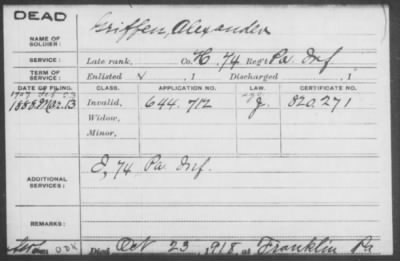 DEAD
NAME OF SOLDIER: Griffen, Alexander
SERVICE: Late rank, Co. H, 74 Reg't Pa. Inf
TERM OF SERVICE: Enlisted , 1 Discharged , 1
DATE OF FILING. CLASS. APPLICATION NO. LAW. CERTIFICATE NO.
1888 Mar. 13 Invalid, 644.712 820.271
Widow,
Minor,
ADDITIONAL SERVICES: E, 74 Pa. Inf.
REMARKS:
Died Oct 23, 1918, at Franklin Pa